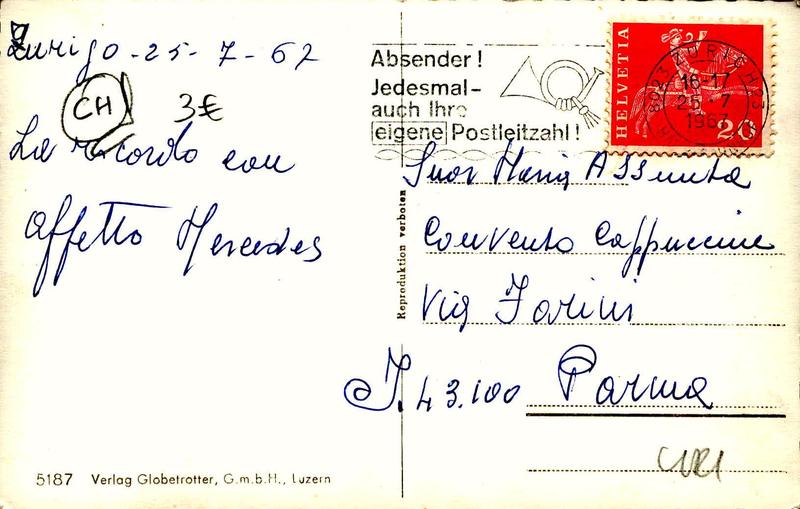 Zurigo - 25 - 7 - 67
CH
3€
La ricordo con
affetto Mercedes
5187 Verlag Globetrotter, G.m.b.H., Luzern
Reproduktion verboten
Absender!
Jedesmal-
auch Ihre
eigene Postleitzahl!
HELVETIA
20
8023 ZÜRICH 23
16-17
25.-7
1967
Suor Maria Assunta
Convento Cappuccine
Via Farini
I. 43.100 Parma